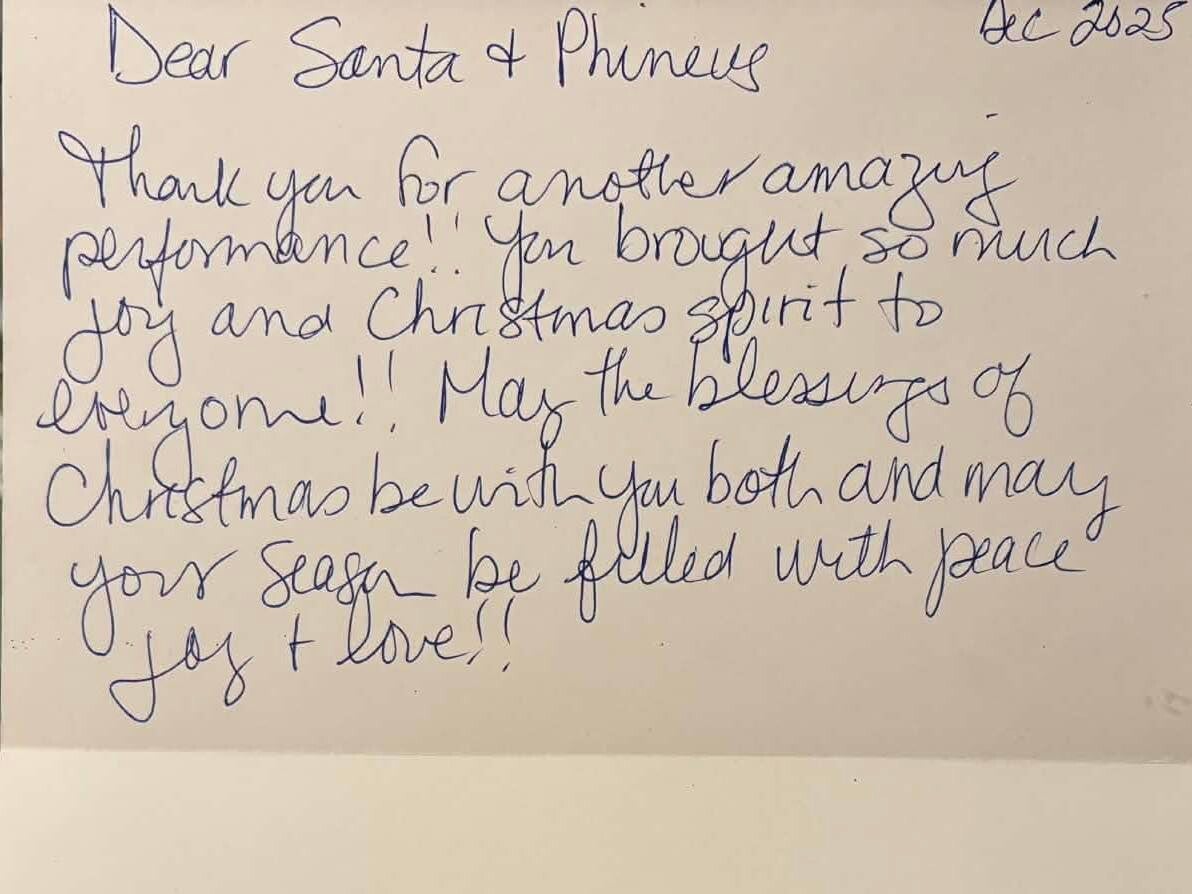 Dec 2025
Dear Santa + Phineus
Thank you for another amazing
performance!! You brought so much
joy and Christmas spirit to
everyone!! May the blessings of
Christmas be with you both and may
your season be filled with peace
joy + love!!